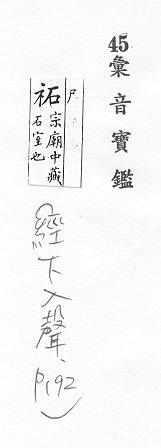 45彙音寶鑑
尸
祏宗廟中藏
石室也
(經下入聲、p,92)